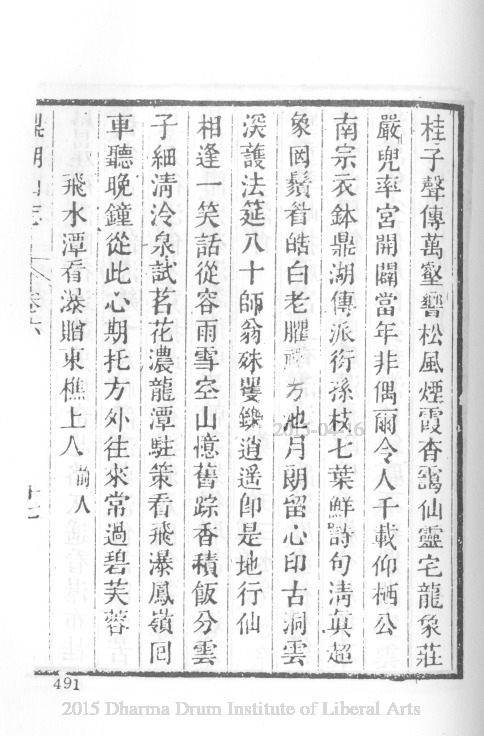 桂子聲傳萬壑響松風煙霞杳靄仙靈宅龍象莊
嚴兜率宮開闢當年非偶爾令人千載仰栖公
南宗衣鉢鼎湖傳派衍孫枝七葉鮮詩句清真超
象罔鬚眉皓白老臞禪方池月朗留心印古洞雲
深護法筵八十師翁殊矍鑠逍遥卽是地行仙
相逢一笑話從容雨雪空山憶舊踪香積飯分雲
子細清泠泉試茗花濃龍潭駐策看飛瀑鳳嶺囘
車聽晚鐘從此心期托方外往來常過碧芙蓉
飛水潭看瀑贈東樵上人 前人
鼎湖山志 卷六 十七
491
2015-04-16
2015 Dharma Drum Institute of Liberal Arts